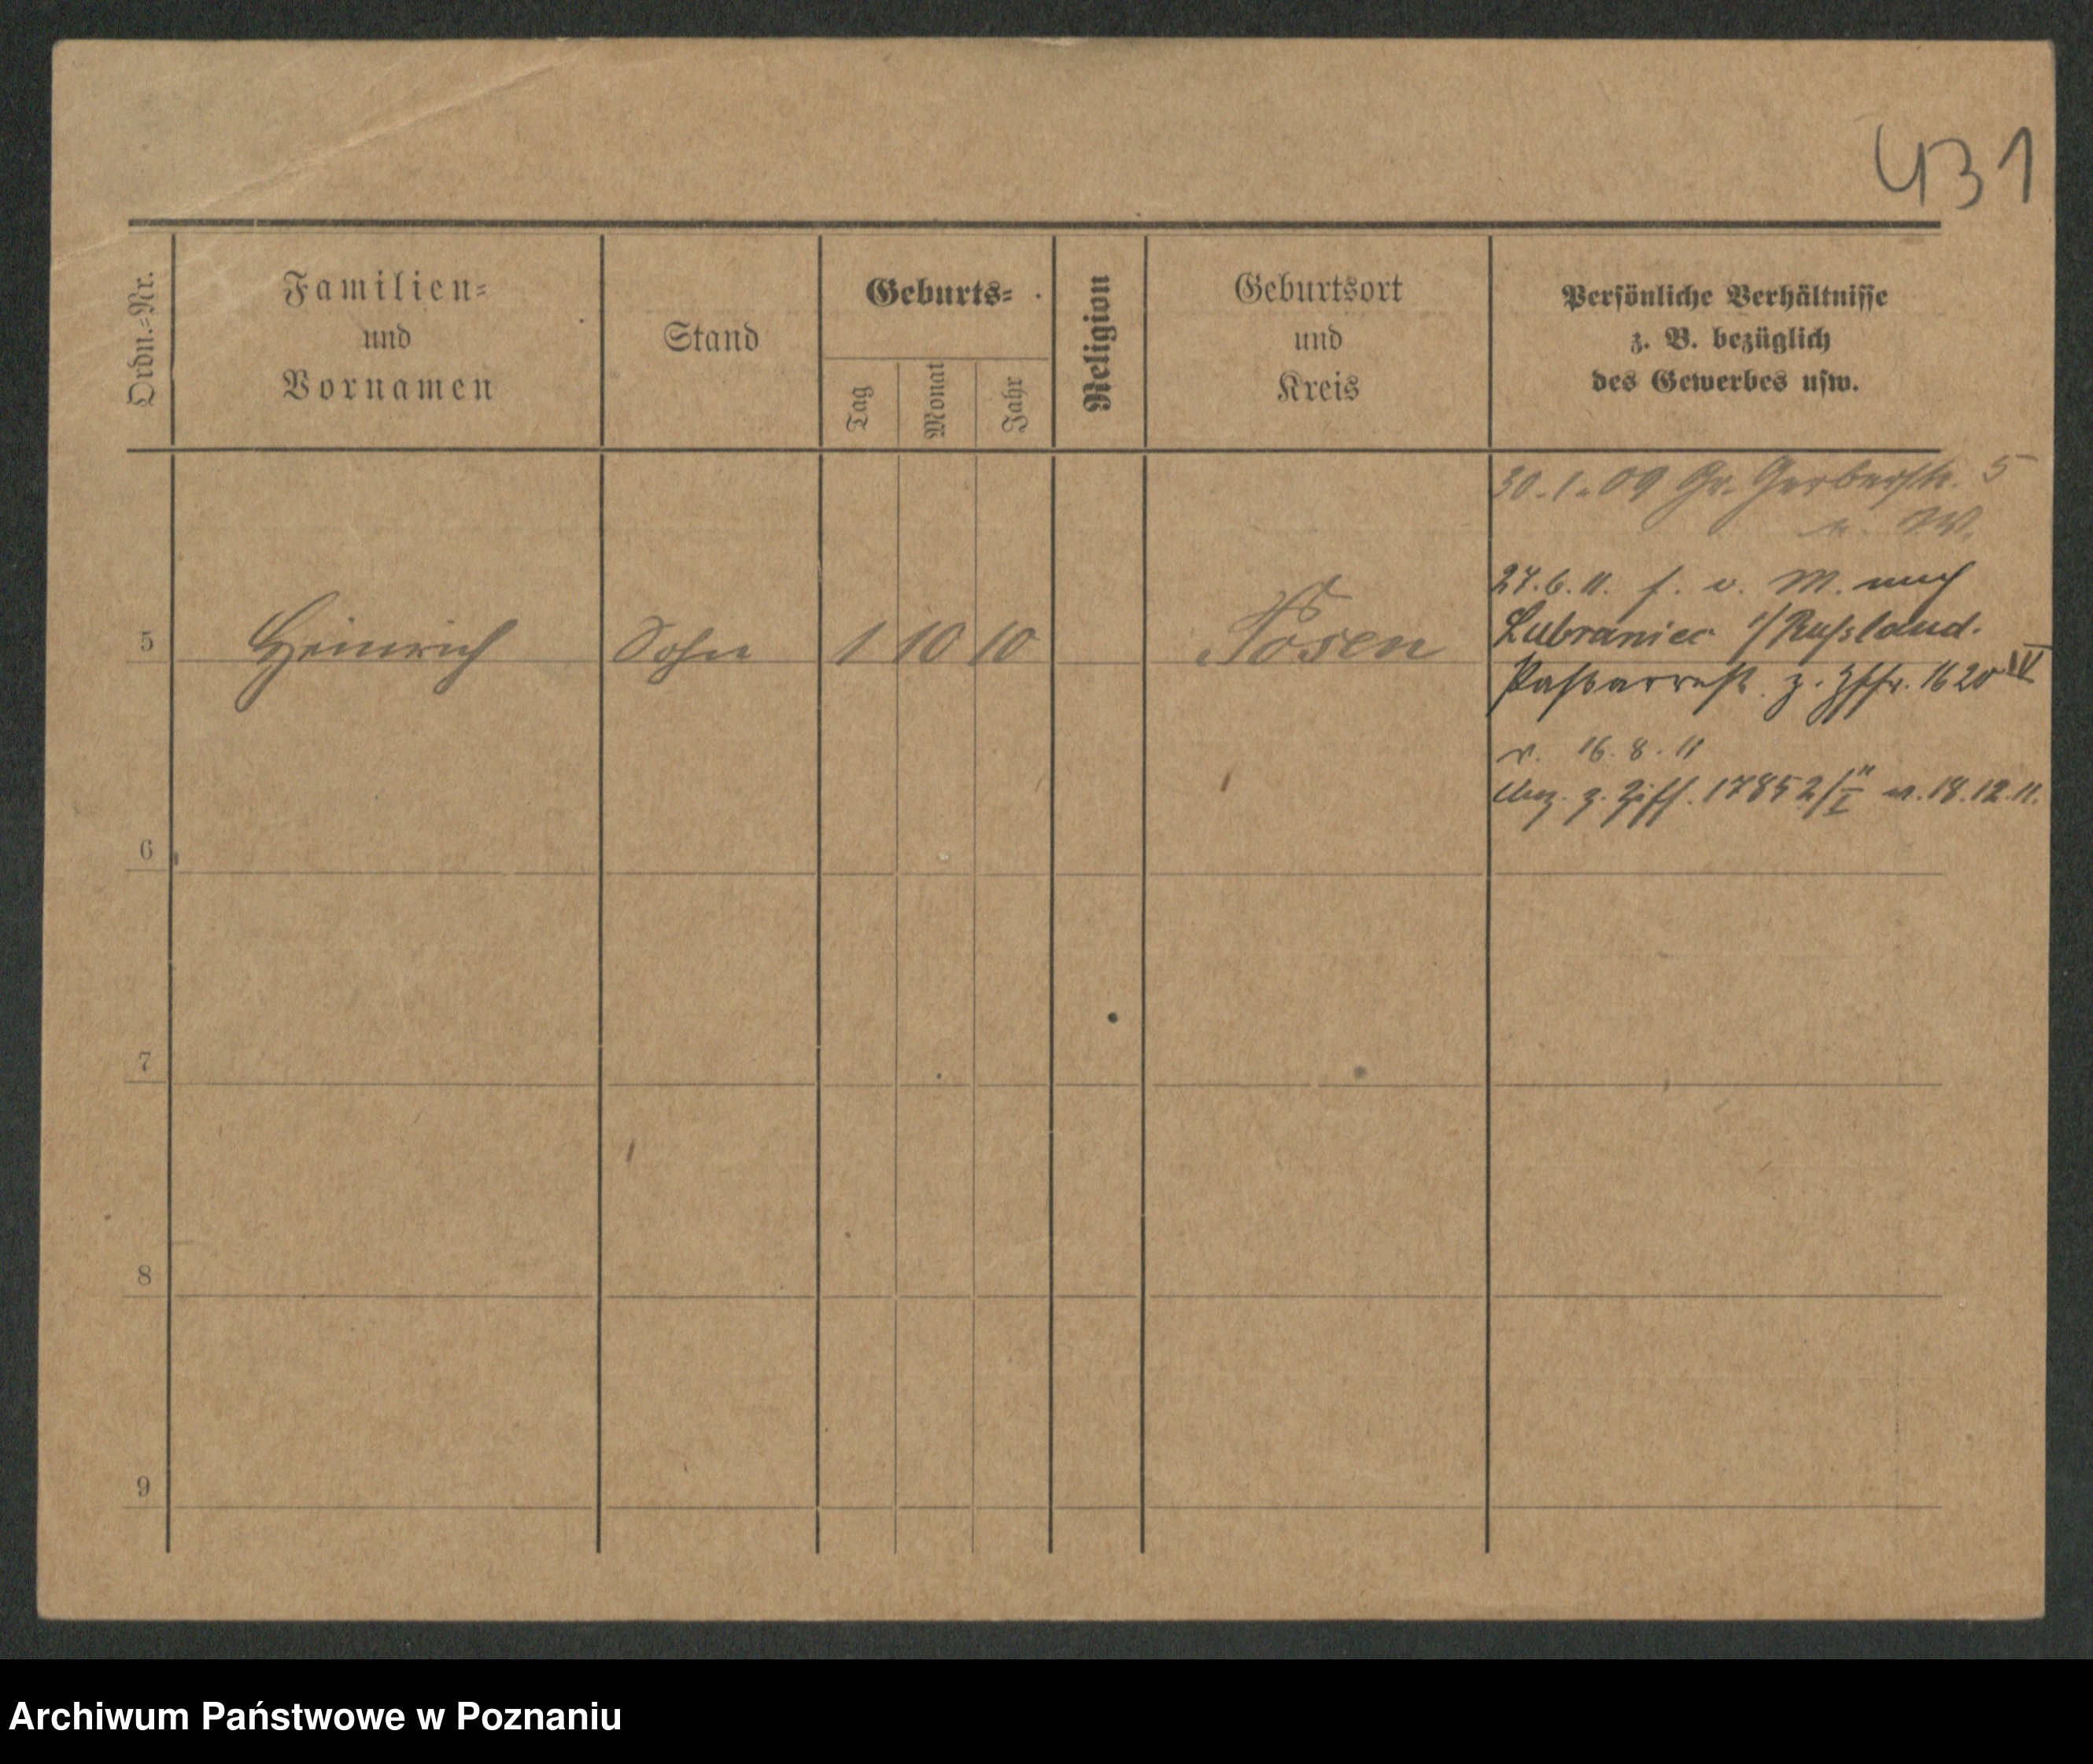 431
Ordn.-Nr.
Familien-
und
Vornamen
Stand
Geburts-
Tag
Monat
Jahr
Religion
Geburtsort
und
Kreis
Persönliche Verhältnisse
z. B. bezüglich
des Gewerbes usw.
30.1.09 Gr. Gerberstr. 5
27.6.11. f. v. M. nach
5 Heinrich Sohn 1 10 10 Posen
Lubraniec i/Russland.
z. Ziffr. 1620 IV
v. 16.8.11
z. Ziff. 17852/ v. 18.12.11.
6
7
8
9
Archiwum Państwowe w Poznaniu